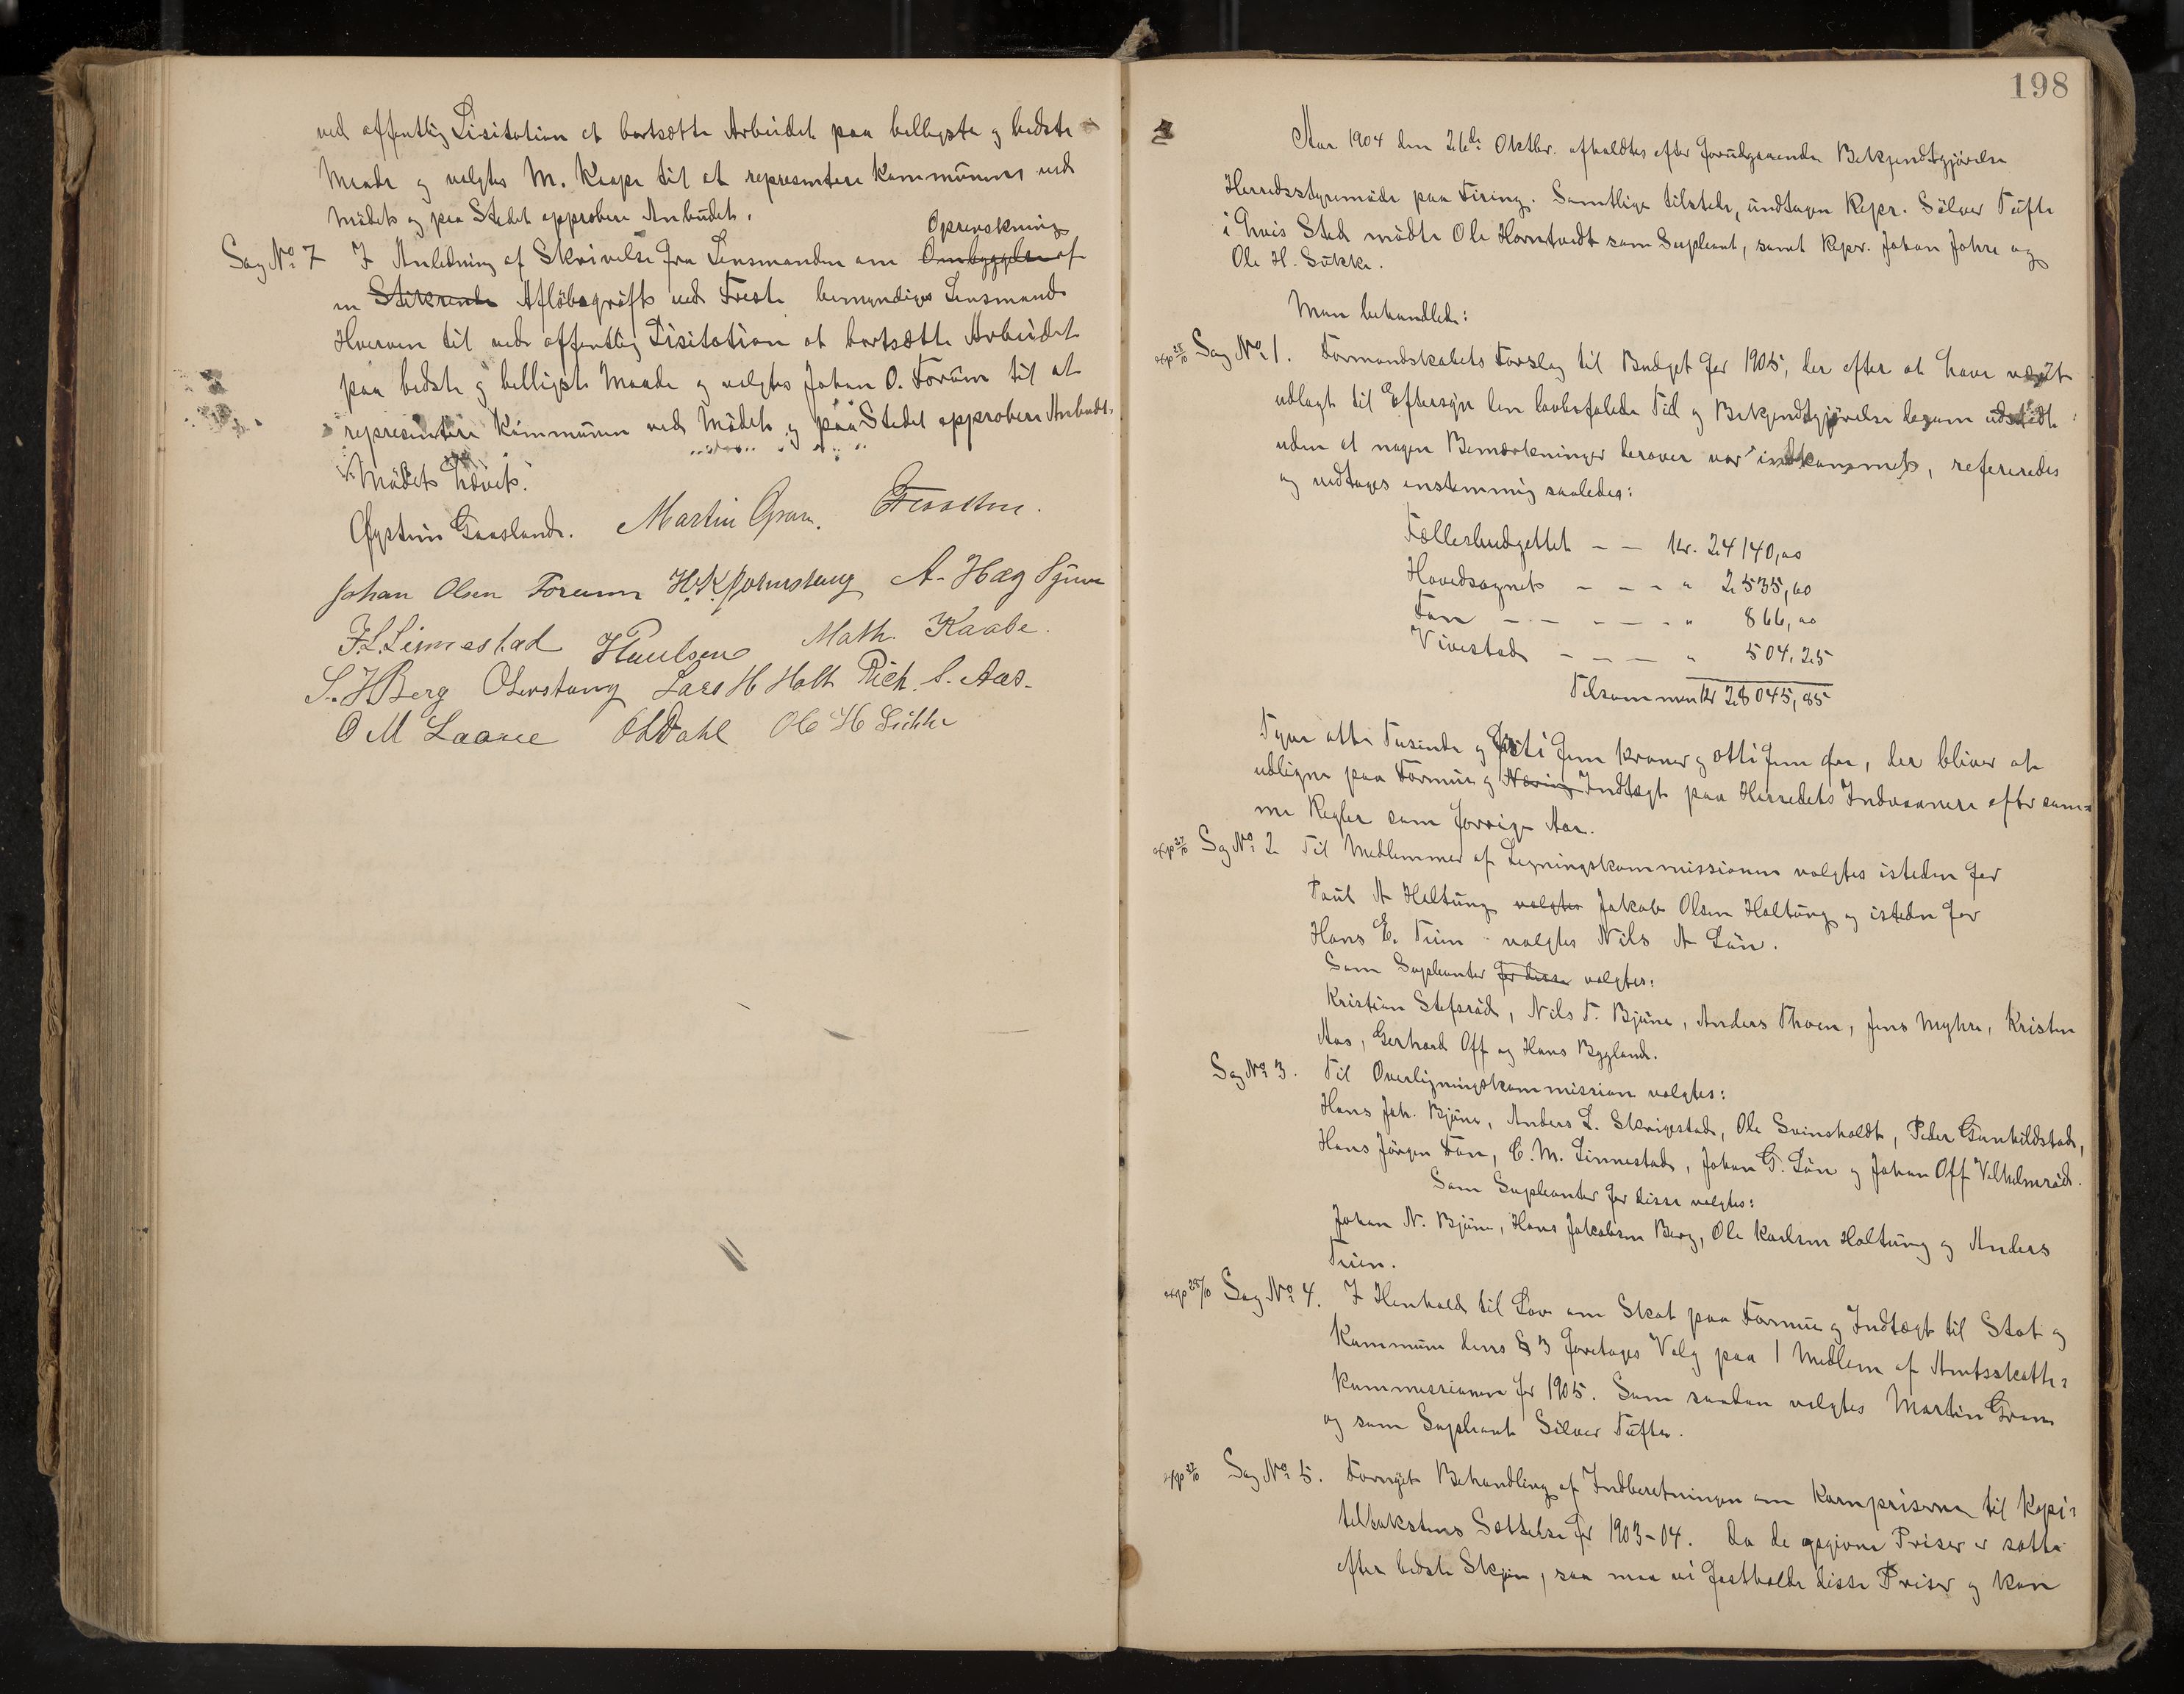 ved offentlig Lisitation at bortsætte Arbeidet paa belligste og bedste
Maade og valgtes M. Kaape til at representere Kommunens ved
Mödet og paa Stedet approbere Anbudet.
Oprenskning
Sag No 7 I Anledning af Skrivelse fra Lensmanden om Ombyggelse af
en Stikrende Aflöbsgröft ved Freste bemyndiges Lensmand
Hverven til ved offentlig Lisitation at bortsætte Arbeidet
paa bedste og belligste Maade og valgtes Johan O. Forum til at
representere Kommunen ved Mödet og paa Stedet approbere Anbudet.
Mödet hævet.
Øystein Gaasland. Martin Gran.
Johan Olsen Forum A. Hæg
F. L. Linnestad HPaulsen Math. Kaabe.
S. H Berg OLerstang Lars H Holt Rich. S. Aas.
O M Laane OLDahl Ole H Sukke
198
Aar 1904 den 26de Oktbr. afholdtes efter forudgaaende Bekjendtgjörelse
Herredsstyremöde paa Firing. Samtlige tilstede, undtagen Repr. Sölver Tufte
i hvis Sted mödte Ole Horntvedt som Supleant, samt Repr. Johan Johre og
Ole H. Sukke.
Man behandlede:
exp 28/10 Sag No 1. Formandskabets Forslag til Budget for 1905, der efter at have været
udlagt til Eftersyn den lovbefalede Tid og Bekjendtgjörelse derom udstedt
uden at nogen Bemærkninger derover var indkommet, refereredes
og vedtages enstemmig saaledes:
Fællesbudgettet – – Kr. 24140,00
Hovedsognet – – – " 2535,60
Fon – – – – – " 866,00
Vivestad – – – " 504,25
Tilsammen Kr 28045,85
Tyve otte Tusinde og förti fem kroner og otti fem øre, der bliver at
udligne paa Formue og Næring Indtægt paa Herredets Indvaanere efter sam=
me Regler som forrige Aar.
exp 27/10 Sag No 2 Til Medlemmer af Ligningskommissionen valgtes isteden for
Paul A Haltung valgtes Jakob Olsen Haltung og isteden for
Hans E. Tuen valgtes Nils A Lön.
Som Supleanter for disse valgtes:
Kristian Stefsröd, Nils T. Bjune, Anders Thoen, Jens Myhre, Kristen
Aas, Gerhard Off og Hans Bygland.
Sag No 3. Til Overligningskommission valgtes:
Hans Joh. Bjune, Anders L. Skrigestad, Ole Svinsholdt, Peder Gunhildstad,
Hans Jörgen Fon, C. M. Linnestad, Johan G. Lön og Johan Off Vilhelmröd.
Som Supleanter for disse valgtes:
Johan N. Bjune, Hans Jakobsen Berg, Ole Karlsen Haltung og Anders
Tuen.
exp 28/10 Sag No 4. I Henhold til Lov om Skat paa Formue og Indtægt til Stat og
Kommune dens § 3 foretages Valg paa 1 Medlem af Amtsskatte=
kommissionen for 1905. Som saadan valgtes Martin Gran
og som Supleant Sölver Tufte.
exp 27/10 Sag No 5. Fornyet Behandling af Indberetningen om Kornpriserne til Kapi=
teltakstens Sættelse for 1903-04. Da de opgivne Priser er satte
efter bedste Skjön, saa maa vi fastholde disse Priser og kan